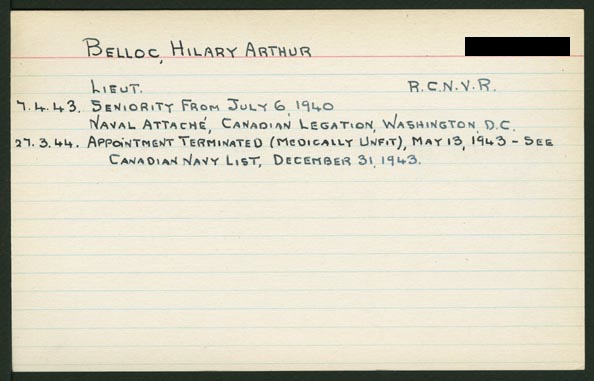 BELLOC, HILARY ARTHUR
LIEUT. R.C.N.V.R.
7.4.43. SENIORITY FROM JULY 6, 1940
NAVAL ATTACHÉ, CANADIAN LEGATION, WASHINGTON, D.C.
27.3.44. APPOINTMENT TERMINATED (MEDICALLY UNFIT), MAY 13, 1943 - SEE
CANADIAN NAVY LIST, DECEMBER 31, 1943.